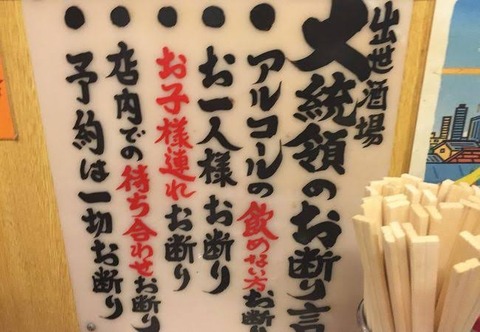 出世酒場
大統領のお断り言
・アルコールの飲めない方お断り
・お一人様お断り
・お子様連れお断り
・店内での待ち合わせお断り
・予約は一切お断り